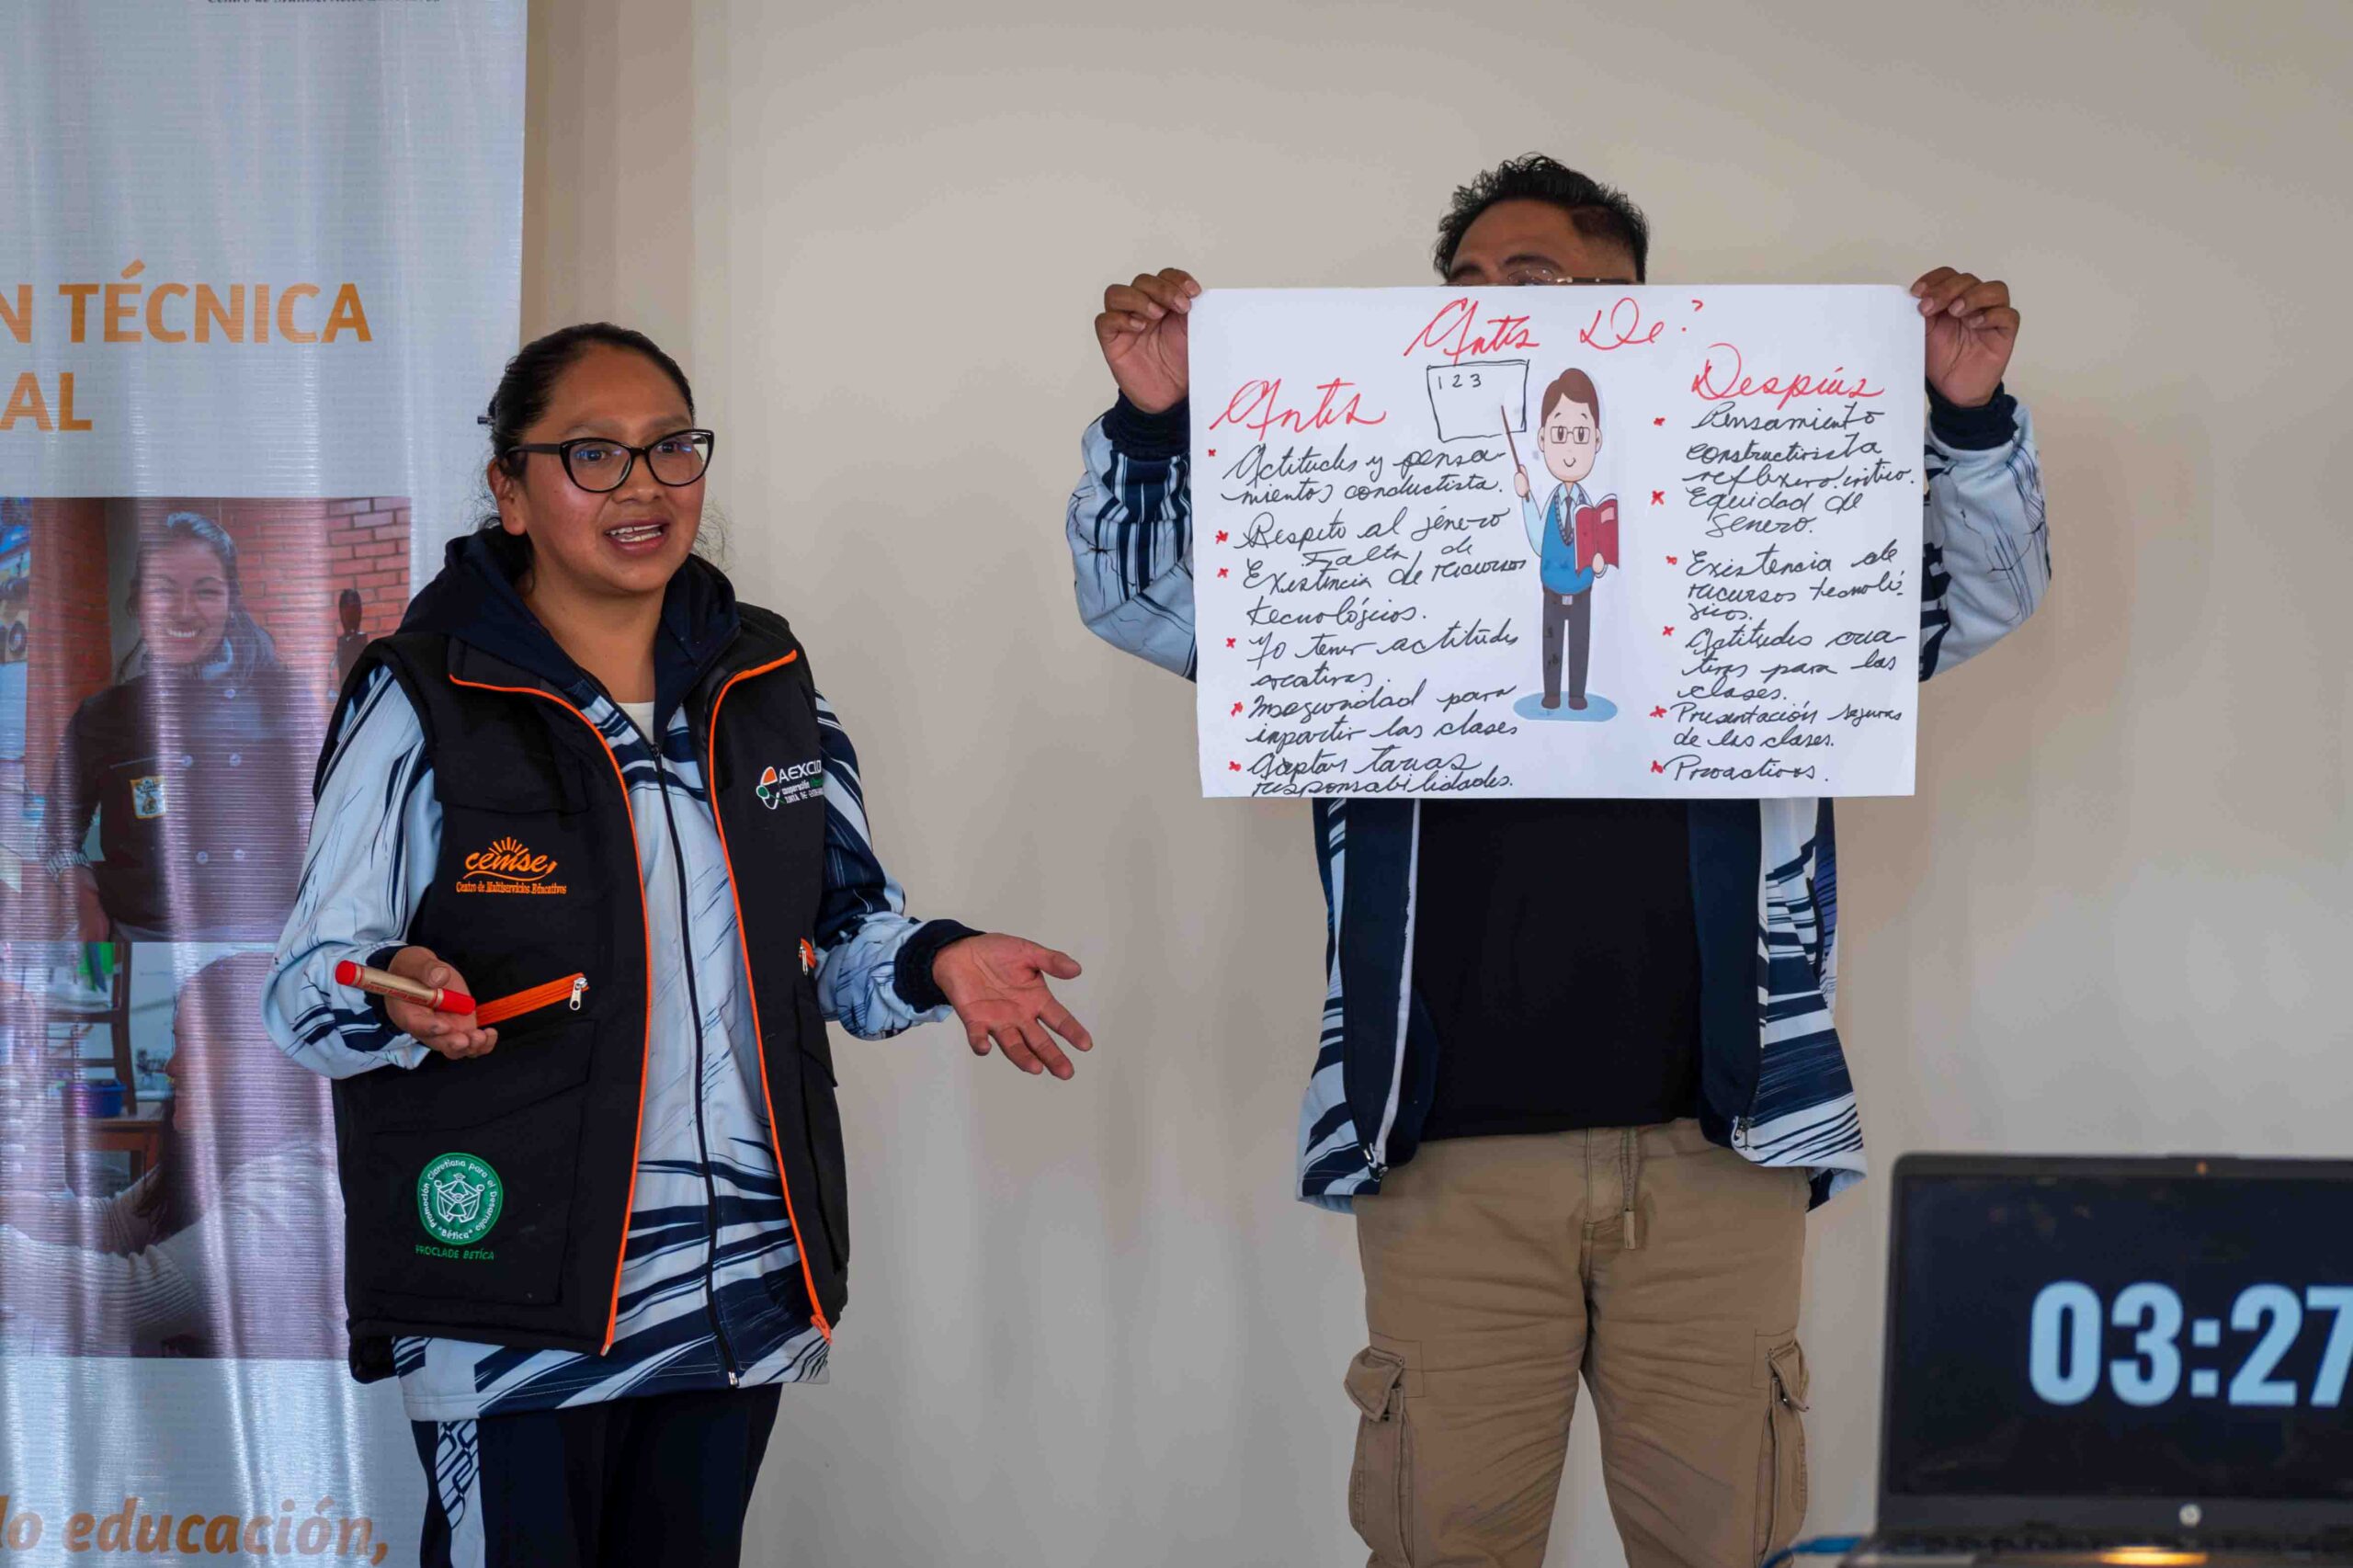 N TÉCNICA
AL
lo educación,
AEXCID
cemse
Centro de Multiservicios Educativos
Promoción Claretiana para el Desarrollo
"Bética"
PROCLADE BETICA
Antes De?
Antes
Actitudes y pensa-
mientos conductista.
Respeto al jénero
Falta de
Existencia de recursos
tecnológicos.
No tener actitudes
creativas.
Inseguridad para
impartir las clases
Aceptar tareas
responsabilidades.
1 2 3
Después
Pensamiento
constructivista
reflexivo. critico.
Equidad de
genero.
Existencia de
recursos tecnoló-
gicos.
Actitudes crea-
tivas para las
clases.
Presentación seguras
de las clases.
Proactivos.
03:27